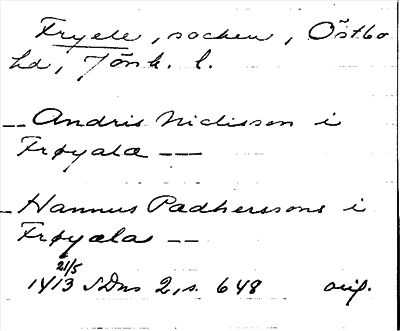 Fryele, socken, Östbo
hd, Jönk. l.
-- Andris Niclisson i
Frøyala --
-- Hannus Padherssons i
Frøyalas --
21/5
1413 SDns 2, s. 648 orig.